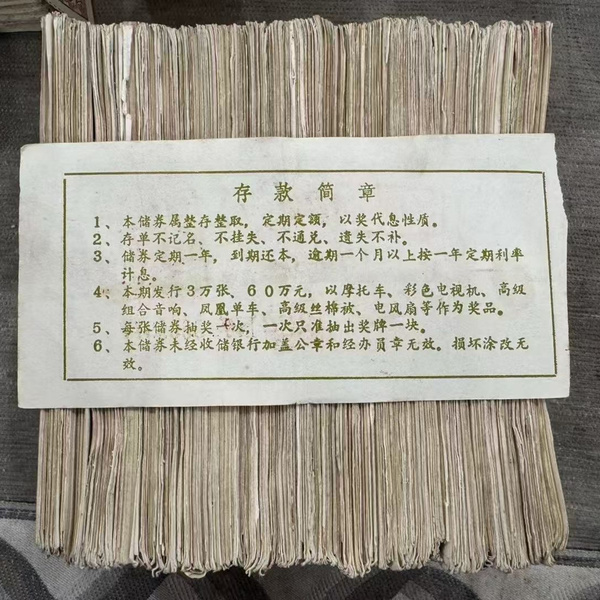 存款简章
1、本储券属整存整取，定期定额，以奖代息性质。
2、存单不记名、不挂失、不通兑、遗失不补。
3、储券定期一年，到期还本，逾期一个月以上按一年定期利率
计息。
4、本期发行3万张、60万元，以摩托车、彩色电视机、高级
组合音响、凤凰单车、高级丝棉被、电风扇等作为奖品。
5、每张储券抽奖一次，一次只准抽出奖牌一块。
6、本储券未经收储银行加盖公章和经办员章无效。损坏涂改无
效。